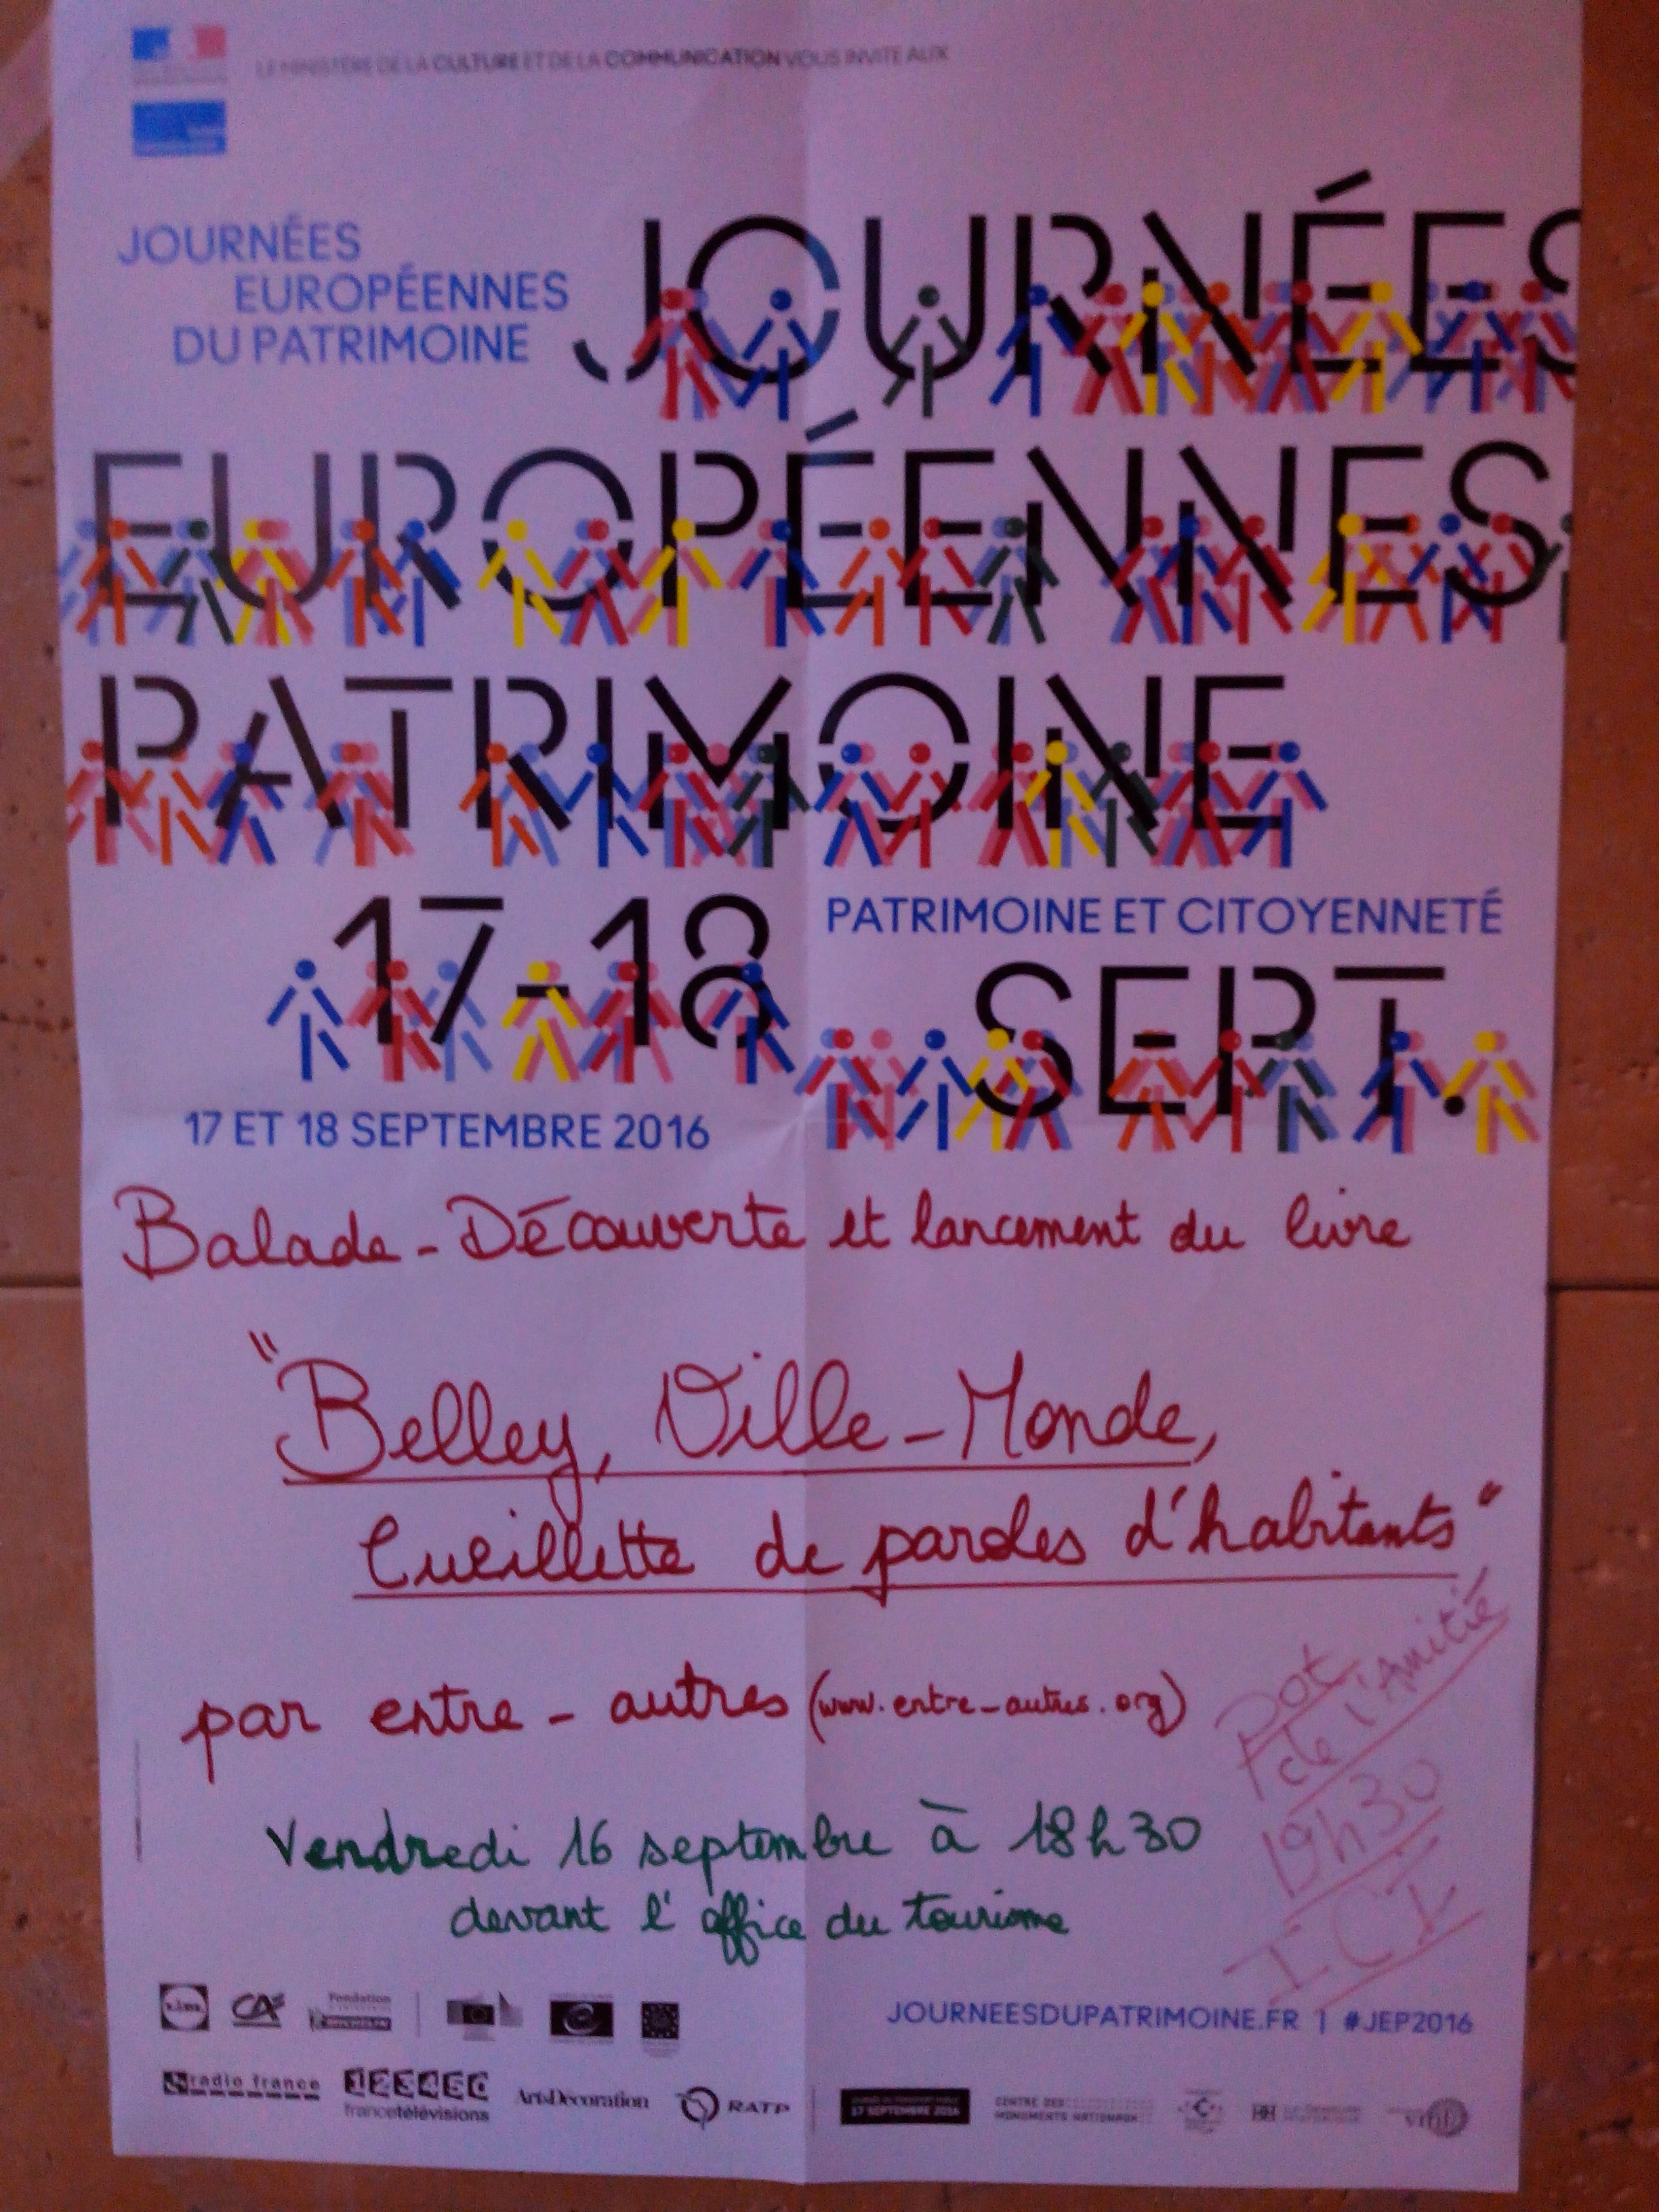 LE MINISTÈRE DE LA CULTURE ET DE LA COMMUNICATION VOUS INVITE AUX
JOURNÉES
EUROPÉENNES
DU PATRIMOINE
JOURNÉES
EUROPÉENNES
PATRIMOINE
17-18
PATRIMOINE ET CITOYENNETÉ
SEPT.
17 ET 18 SEPTEMBRE 2016
Balade-Découverte et lancement du livre
"Belley, Ville-Monde,
Cueillette de paroles d'habitants"
par entre-autres (www.entre-autres.org)
pot
de l'Amitié
19h30
ICI
Vendredi 16 septembre à 18h30
devant l'office du tourisme
CA
Fondation
MICHELIN
JOURNEESDUPATRIMOINE.FR | #JEP2016
radio france
francetélévisions
Art&Décoration
RATP
17 SEPTEMBRE 2016
CENTRE DES
MONUMENTS NATIONAUX